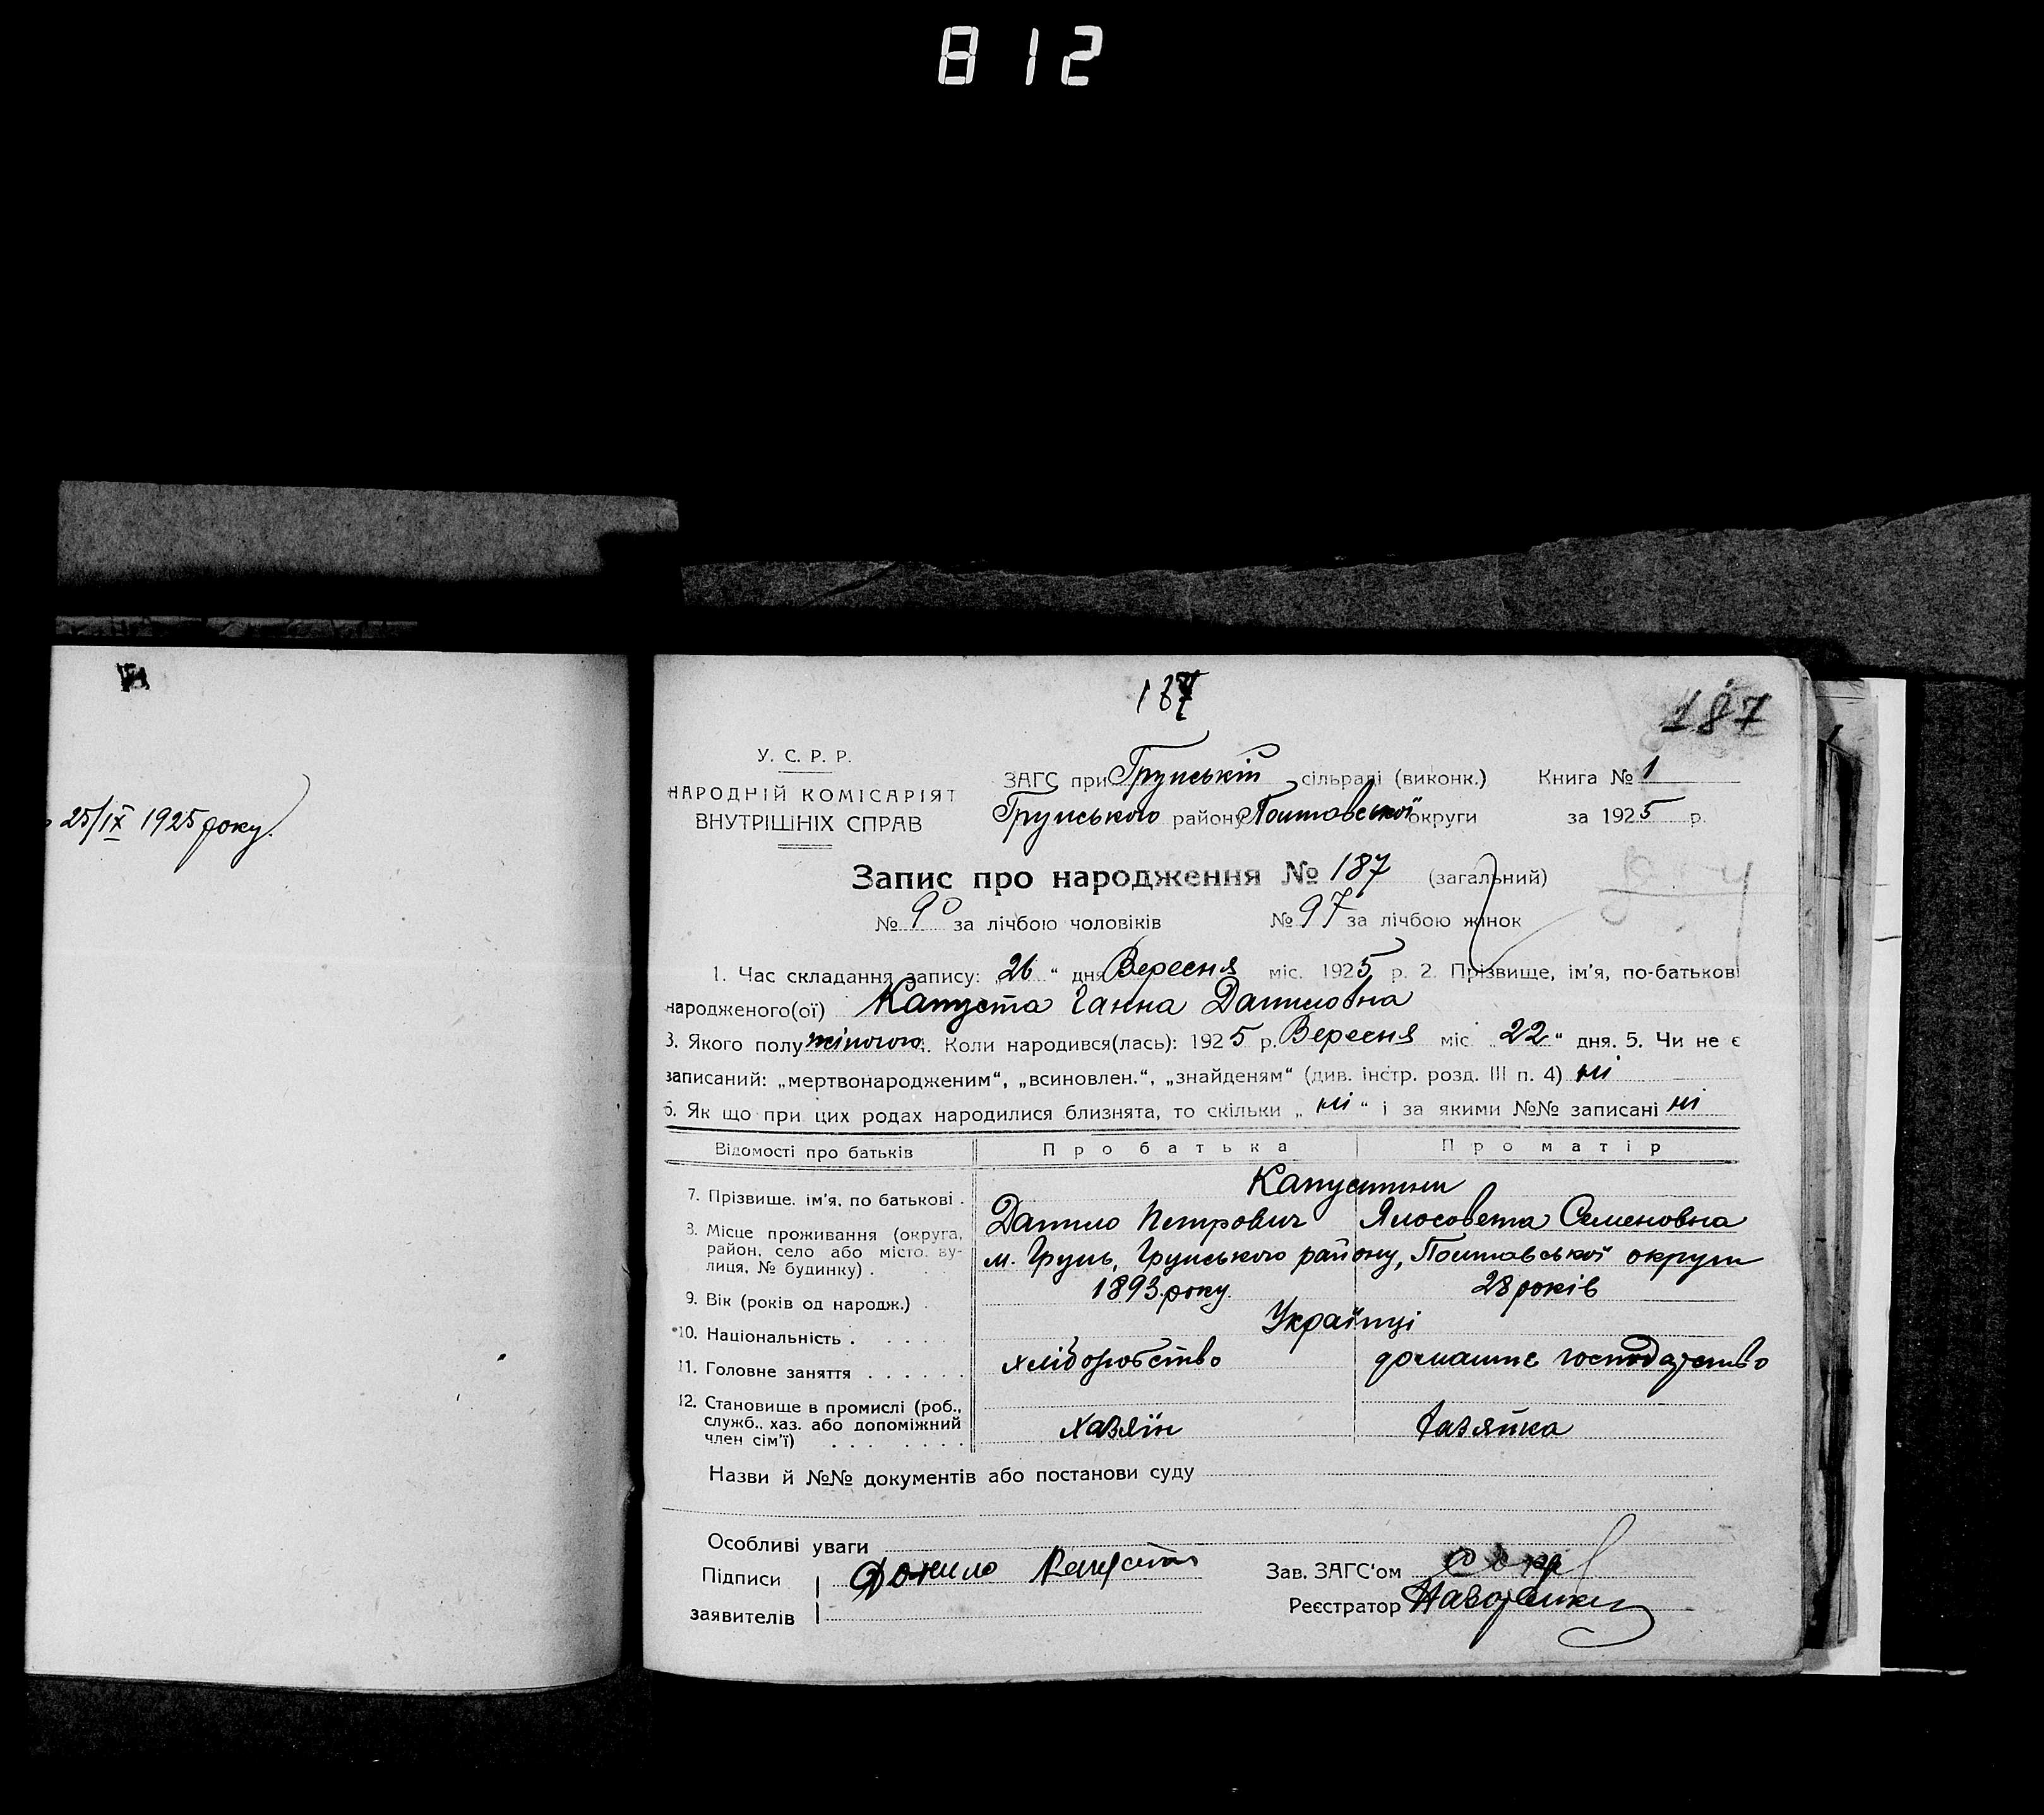 812
25/IX 1925 року.
187
187
У. С. Р. Р.
НАРОДНІЙ КОМІСАРІЯТ
ВНУТРІШНІХ СПРАВ
ЗАГС при Грунській сільраді (виконк.) Книга № 1
Грунського району Полтавської округи за 1925 р.
Запис про народження № 187 (загальний)
№ 90 за лічбою чоловіків № 97 за лічбою жінок
1. Час складання запису: „26“ дня Вересня міс. 1925 р. 2. Прізвище, ім'я, по-батькові
народженого(ої) Капуста Ганна Даниловна
3. Якого полу жіночого. Коли народився(лась): 1925 р. Вересня міс „22“ дня. 5. Чи не є
записаний: „мертвонародженим“, „всиновлен.“, „знайденям“ (див. інстр. розд. III п. 4) ні
6. Як що при цих родах народилися близнята, то скільки „ні“ і за якими №№ записані ні
Відомості про батьків Про батька Про матір
Капустини
7. Прізвище. ім'я, по батькові . Данило Петрович Ялосовета Семеновна
8. Місце проживання (округа, район, село або місто. вулиця, № будинку) . м. Грунь, Грунського району, Полтавської округи
9. Вік (років од народж.) . 1893 року. 28 років
10. Національність . . . . . Українці
11. Головне заняття . . . . . . хліборобство домашнє господарство
12. Становище в промислі (роб., служб., хаз. або допоміжний член сім'ї) . . . . . . . хазяїн хазяйка
Назви й №№ документів або постанови суду
Особливі уваги
Підписи Данило Капуста Зав. ЗАГС'ом
заявителів Реєстратор